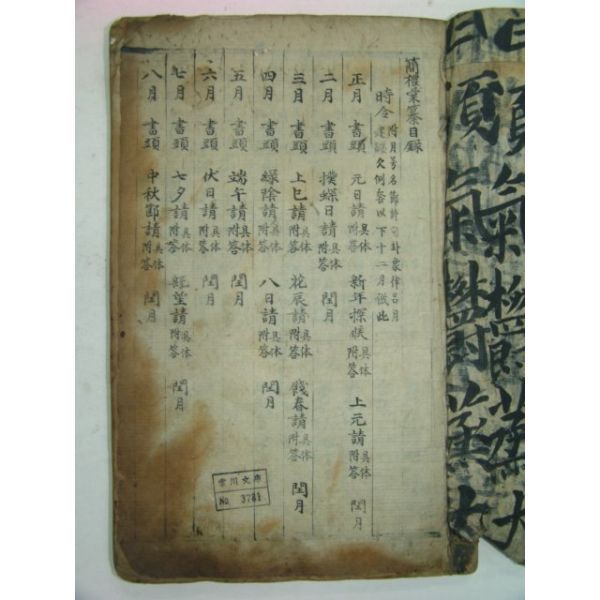 簡櫝彙纂目錄
時令 附月号名節詩句卦象律呂月
久例答以下十二月倣此
正月 書頭 元日請具体附答 新年探候具体附答 上元請具体附答 閏月
二月 書頭 撲蝶日請附答 閏月
三月 書頭 上巳請具体附答 花辰請具体附答 餞春請具体附答 閏月
四月 書頭 綠陰請具体附答 八日請具体附答 閏月
五月 書頭 端午請具体附答 閏月
六月 書頭 伏日請具体附答 閏月
七月 書頭 七夕請具体附答 旣望請具体附答 閏月
八月 書頭 中秋節請具体附答 閏月
文庫
No 3781
頭氣